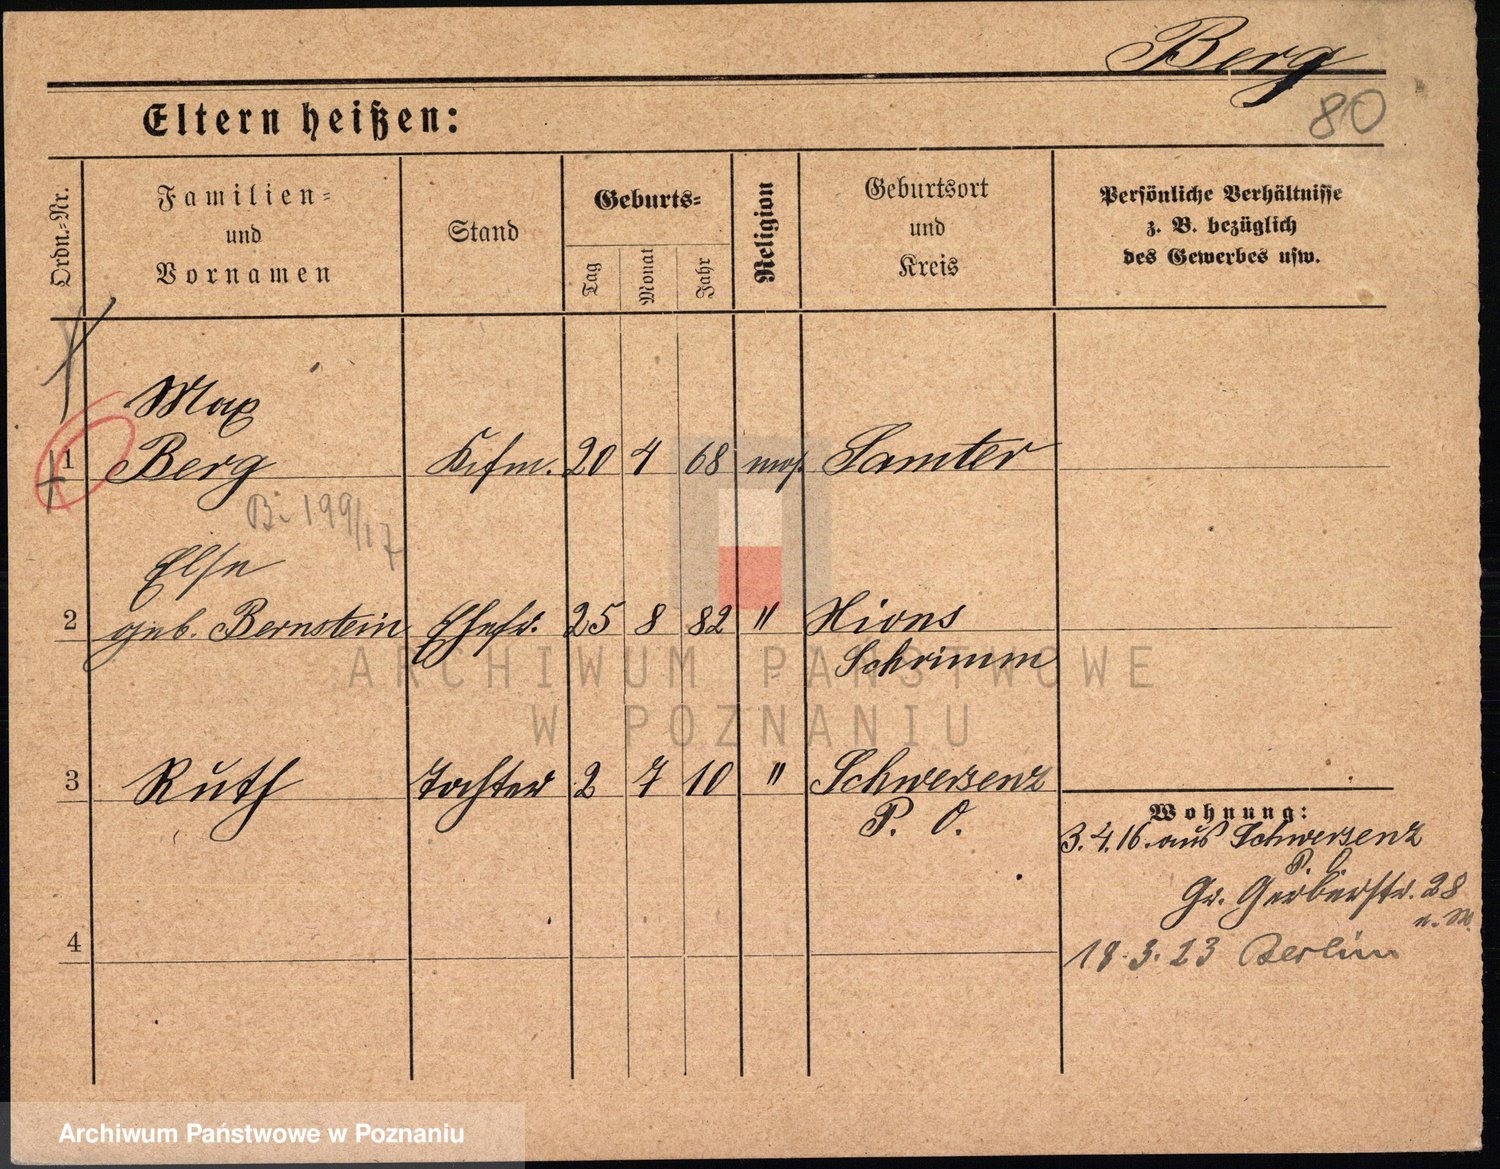 Berg
80
Eltern heißen:
Ordn.-Nr.
Familien-
und
Vornamen
Stand
Geburts-
Tag
Monat
Jahr
Religion
Geburtsort
und
Kreis
Persönliche Verhältnisse
z. B. bezüglich
des Gewerbes usw.
Max
1 Berg Kfm. 20 4 68 mos. Samter
B. 199/17
Else
2 geb. Bernstein Ehefr. 25 8 82 " Xions
Schrimm
3 Ruth Tochter 2 7 10 " Schwersenz
P. O.
Wohnung:
3.4.16. aus Schwersenz
P. O.
Gr. Gerberstr. 28
4
18.3.23 Berlin
ARCHIWUM PAŃSTWOWE
W POZNANIU
Archiwum Państwowe w Poznaniu